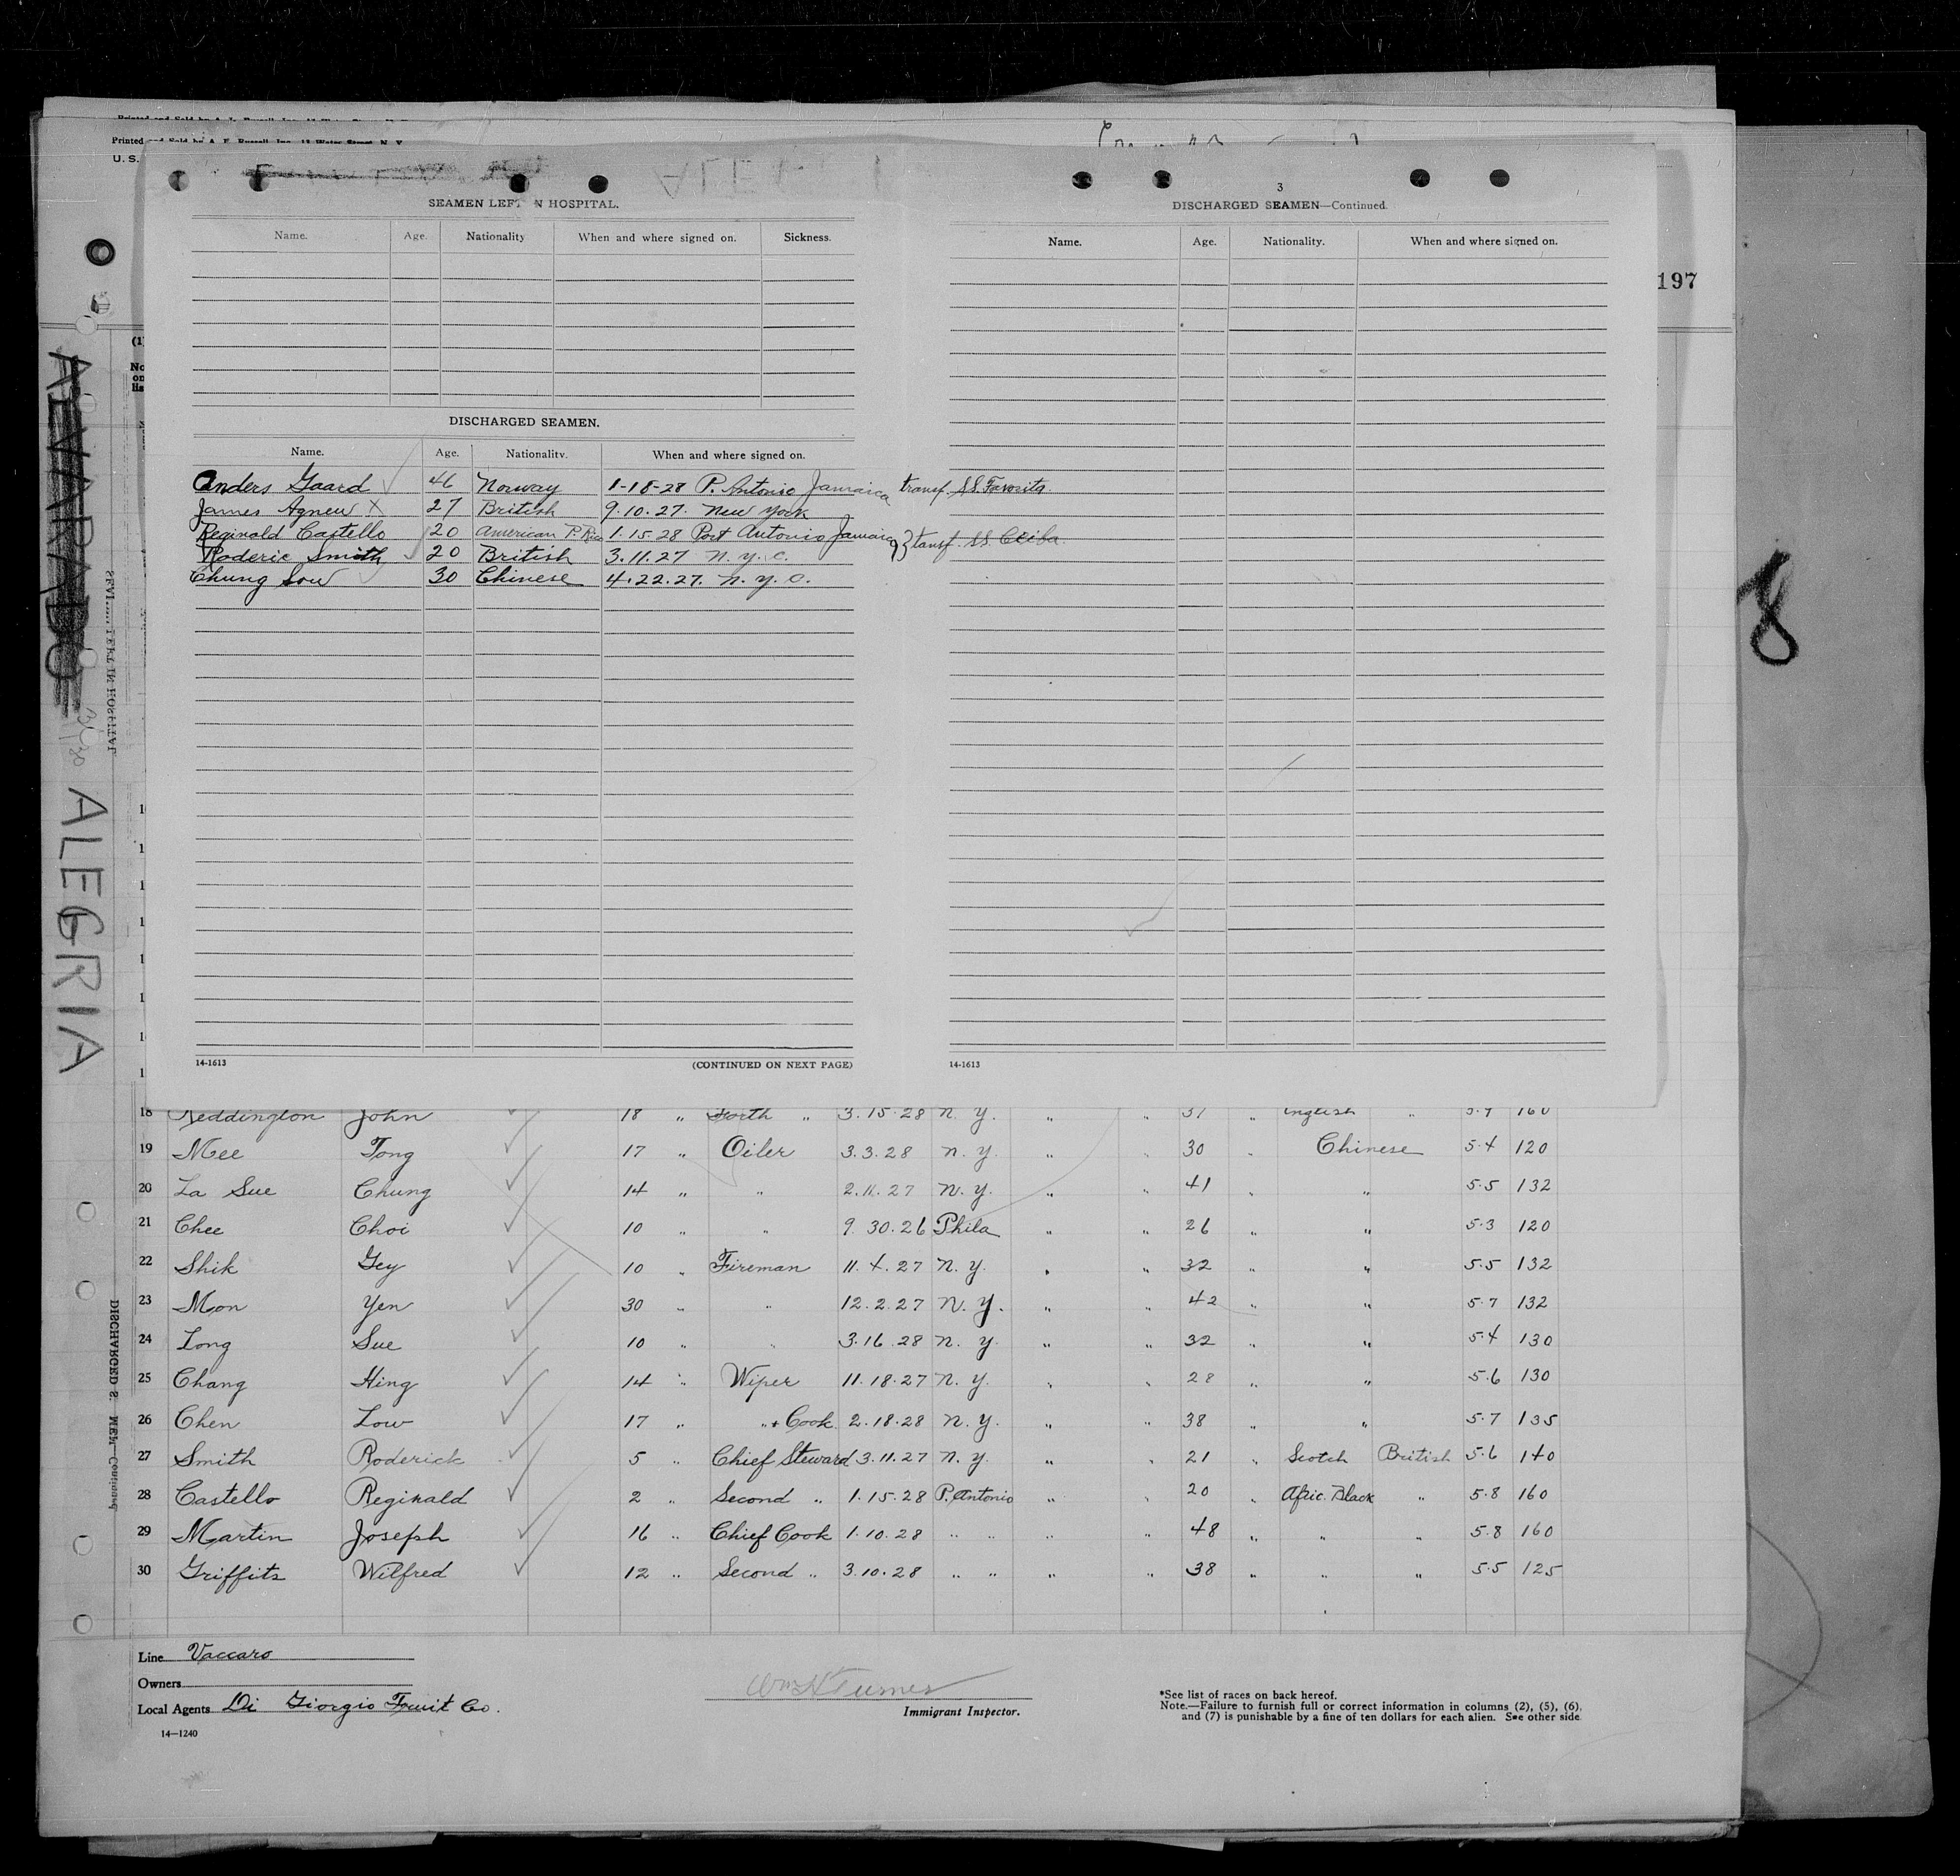 Printed and Sold by A. E. Russell, Inc., 15 Water Street, N. Y.
U. S.
SEAMEN LEFT IN HOSPITAL.
Name. Age. Nationality When and where signed on. Sickness.
DISCHARGED SEAMEN.
Name. Age. Nationality. When and where signed on.
Anders Gaard 46 Norway 1-18-28 P. Antonio Jamaica transf. SS. Favorita
James Agnew X 27 British 9.10.27. New York
Reginald Castello 20 American P. Rico 1.15.28 Port Antonio Jamaica } transf. SS. Ceiba
Roderic Smith 20 British 3.11.27 N. Y. C.
Chung Sow 30 Chinese 4.22.27. N. Y. C.
14-1613 (CONTINUED ON NEXT PAGE)
3
DISCHARGED SEAMEN—Continued.
Name. Age. Nationality. When and where signed on.
14-1613
197
8
ALVARADO
ALEGRIA
SEAMEN LEFT IN HOSPITAL
DISCHARGED SEAMEN—Continued
18 Reddington John 18 " Forth " 3.15.28 N. Y. " " 37 " English " 5.9 160
19 Mee Tong 17 " Oiler 3.3.28 N. Y. " " 30 " Chinese 5.4 120
20 La Sue Chung 14 " " 2.11.27 N. Y. " " 41 " " 5.5 132
21 Chee Choi 10 " " 9.30.26 Phila " " 26 " " 5.3 120
22 Shik Gey 10 " Fireman 11.4.27 N. Y. " " 32 " " 5.5 132
23 Mon Yen 30 " " 12.2.27 N. Y. " " 42 " " 5.7 132
24 Long Sue 10 " 3.16.28 N. Y. " " 32 " " 5.4 130
25 Chang Hing 14 " Wiper 11.18.27 N. Y. " " 28 " " 5.6 130
26 Chen Low 17 " " + Cook 2.18.28 N. Y. " " 38 " " 5.7 135
27 Smith Roderick 5 " Chief Steward 3.11.27 N. Y. " " 21 " Scotch British 5.6 140
28 Castello Reginald 2 " Second " 1.15.28 P. Antonio " " 20 " Afric. Black " 5.8 160
29 Martin Joseph 16 " Chief Cook 1.10.28 " " " " 48 " " " 5.8 160
30 Griffits Wilfred 12 " Second " 3.10.28 " " " " 38 " " " 5.5 125
Line Vaccaro
Owners
Local Agents Di Giorgio Fruit Co.
14—1240
Wm H Turner
Immigrant Inspector.
*See list of races on back hereof.
Note.—Failure to furnish full or correct information in columns (2), (5), (6),
and (7) is punishable by a fine of ten dollars for each alien. See other side.